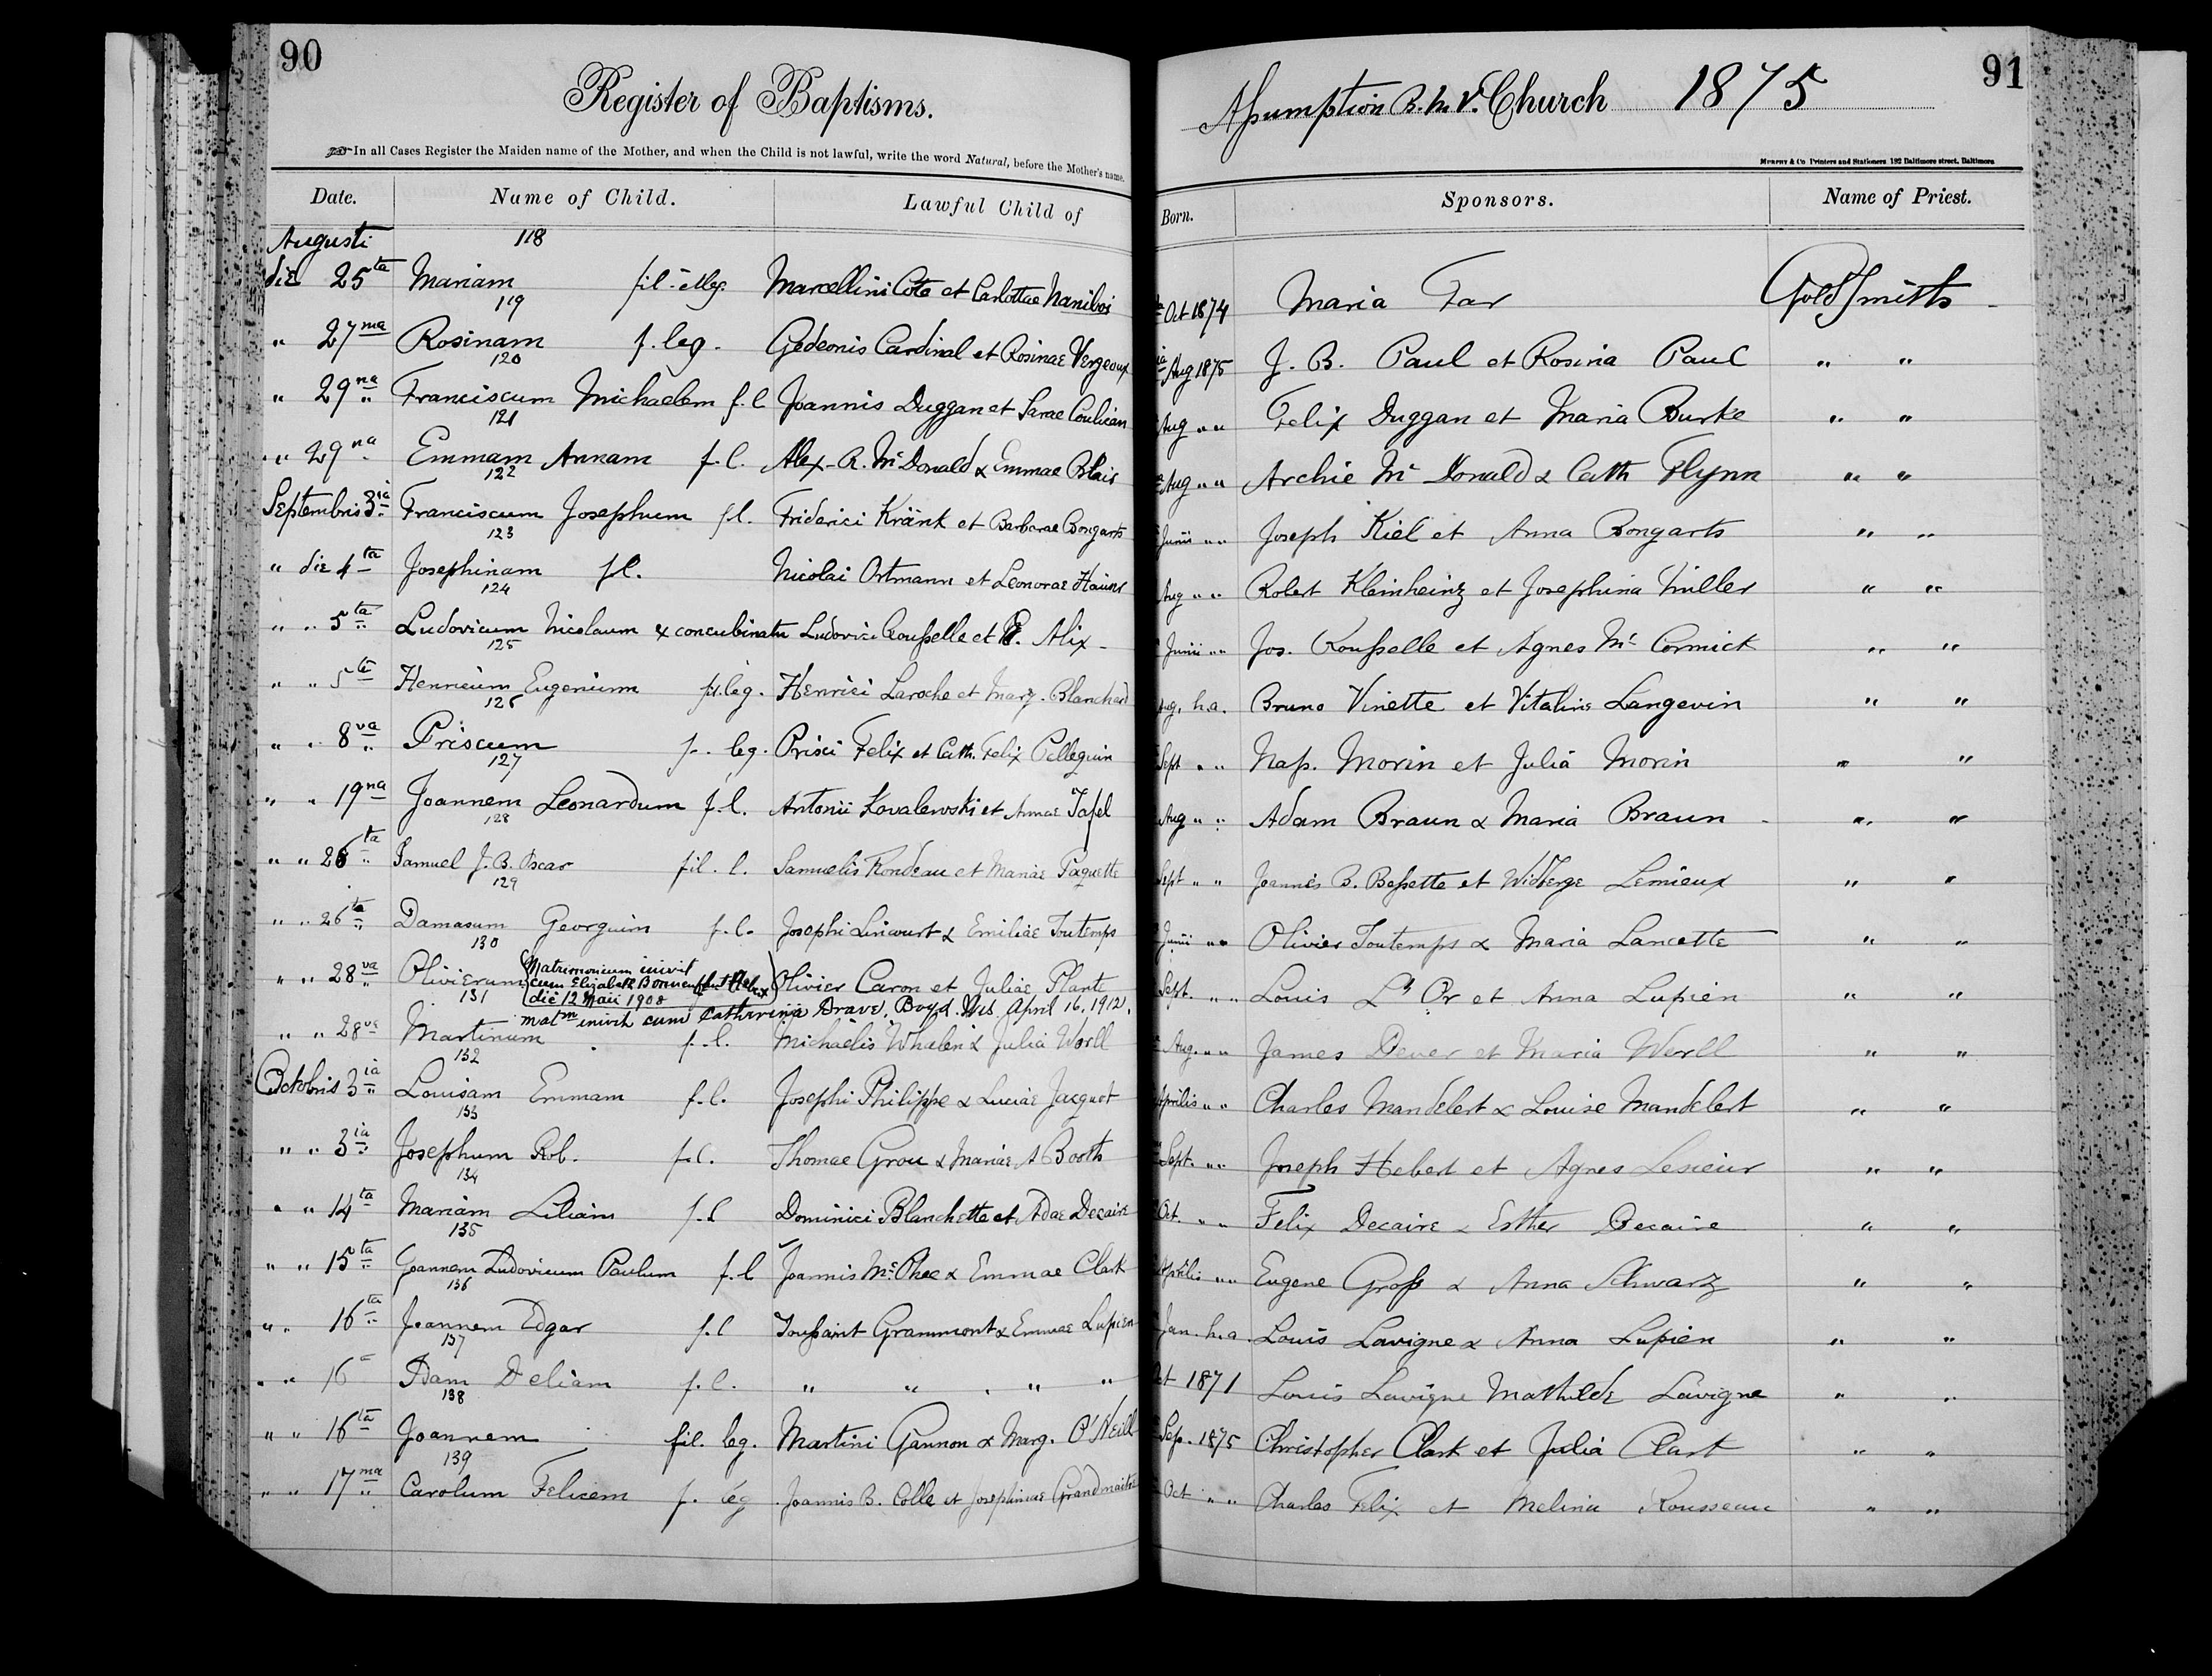 90
Register of Baptisms.
In all Cases Register the Maiden name of the Mother, and when the Child is not lawful, write the word Natural, before the Mother's name.
Assumption B. M. V. Church 1875
91
Murphy & Co Printers and Stationers 182 Baltimore street, Baltimore
Date. Name of Child. Lawful Child of Born. Sponsors. Name of Priest.
Augusti 118
die 25ta Mariam Marcellini Cote et Carlottae Naniboi Oct 1874 Maria Far Goldsmith
119
" 27ma Rosinam f. leg. Gedeonis Cardinal et Rosinae Vergeoux Aug 1875 J. B. Paul et Rosina Paul " "
120
" 29na Franciscum Michaelem f. l Joannis Duggan et Sarae Coulican Aug " " Felix Duggan et Maria Burke " "
121
" 29na Emmam Annam f. l. Alex. R. McDonald & Emmae Blais Aug " " Archie Mc Donald & Cath Flynn " "
122
Septembris 3ia Franciscum Josephum f l. Friderici Kränk et Barbarae Bongarts Junii " " Joseph Kiel et Anna Bongarts " "
123
" die 4ta Josephinam f l. Nicolai Ortmann et Leonorae Aug " " Robert Kleinheinz et Josephina Miller " "
124
" " 5ta Ludovicum Nicolaum ex concubinatu Ludovici Rousselle et Alix Junii " " Jos. Rousselle et Agnes Mc Cormick " "
125
" " 5ta Henricum Eugenium fil. leg. Henrici Laroche et Marg. Blanchard Aug. h.a. Bruno Vinette et Vitaline Langevin " "
126
" " 8va Priscum f. leg. Prisci Felix et Cath. Felix Pelleguin Sept " " Nap. Morin et Julia Morin " "
127
" " 19na Joannem Leonardum f. l. Antonii Kovalewski et Annae Tafel Aug " " Adam Braun & Maria Braun " "
128
" " 26ta Samuel J. B. Oscar fil. l. Samuelis Rondeau et Mariae Paquette Sept " " Joannes B. Bessette et Lemieux " "
129
" " 26ta Damasum Georgium f. l. Josephi Lincourt & Emiliae Toutemps Junii " " Olivier Toutemps & Maria Lancette " "
130
" " 28va Olivierum (Matrimonium inivit
cum Elizabeth
die 12 Maii 1908) Olivier Caron et Juliae Plante Sept. " " Louis Or et Anna Lupien " "
131
matm inivit cum Catherina Drave, Boyd. Wis. April 16, 1912.
" " 28va Martinum f. l. Michaelis Whalen & Julia Worll Aug. " " James Dever et Maria Worll " "
132
Octobris 3ia Louisam Emmam f. l. Josephi Philippe & Luciae Jacquot Aprilis " " Charles Mandelert & Louise Mandelert " "
133
" " 3ia Josephum Rob. f. l. Thomae Grou & Mariae A Booth Sept. " " Joseph Hebert et Agnes Lesieur " "
134
" " 14ta Mariam Liliam f. l Dominici Blanchette et Adae Decaire Oct. " " Felix Decaire & Esther Decaire " "
135
" " 15ta Joannem Ludovicum Paulum f. l Joannis McPhee & Emmae Clark Aprilis " " Eugene Gross & Anna Schwarz " "
136
" " 16ta Joannem Edgar f. l Toussaint Grammont & Emmae Lupien Jan. h.a. Louis Lavigne & Anna Lupien " "
137
" " 16a Idam Deliam f. l. " " " " Oct 1871 Louis Lavigne Mathilde Lavigne " "
138
" " 16ta Joannem fil. leg. Martini Gannon & Marg. O'Neill Sep. 1875 Christopher Clark et Julia Clark " "
139
" " 17ma Carolum Felicem f. leg Joannis B. Colle et Josephinae Grandmaitre Oct " " Charles Felix et Melina Rousseau " "